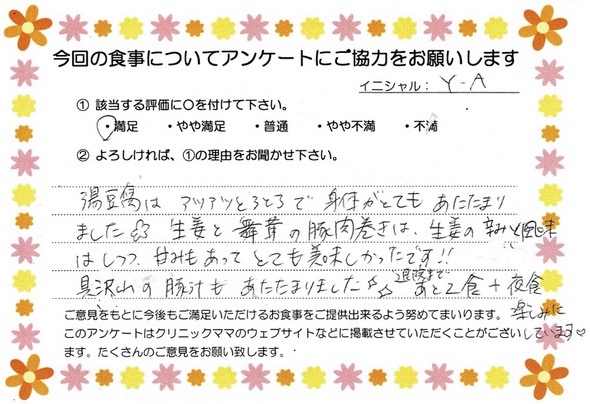 今回の食事についてアンケートにご協力をお願いします
イニシャル: Y-A
① 該当する評価に〇を付けて下さい。
・満足 ・やや満足 ・普通 ・やや不満 ・不満
② よろしければ、①の理由をお聞かせ下さい。
湯豆腐は アツアツとろとろで 身体がとても あたたまり
ました☆ 生姜と 舞茸の豚肉巻きは、生姜の辛みと風味
はしつつ、甘みもあって とても美味しかったです!!
具沢山の豚汁も あたたまりました☆☆ 退院まで あと2食+夜食
楽しみに
しています♡
ご意見をもとに今後もご満足いただけるお食事をご提供出来るよう努めてまいります。
このアンケートはクリニックママのウェブサイトなどに掲載させていただくことがござい
ます。たくさんのご意見をお願い致します。